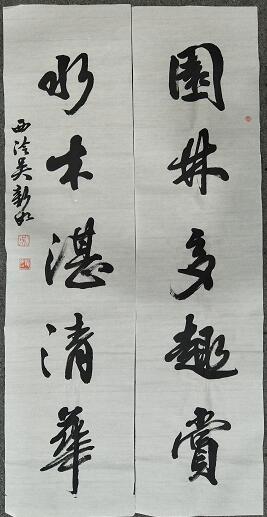 園林多趣賞
水木湛清華
西泠吳新如